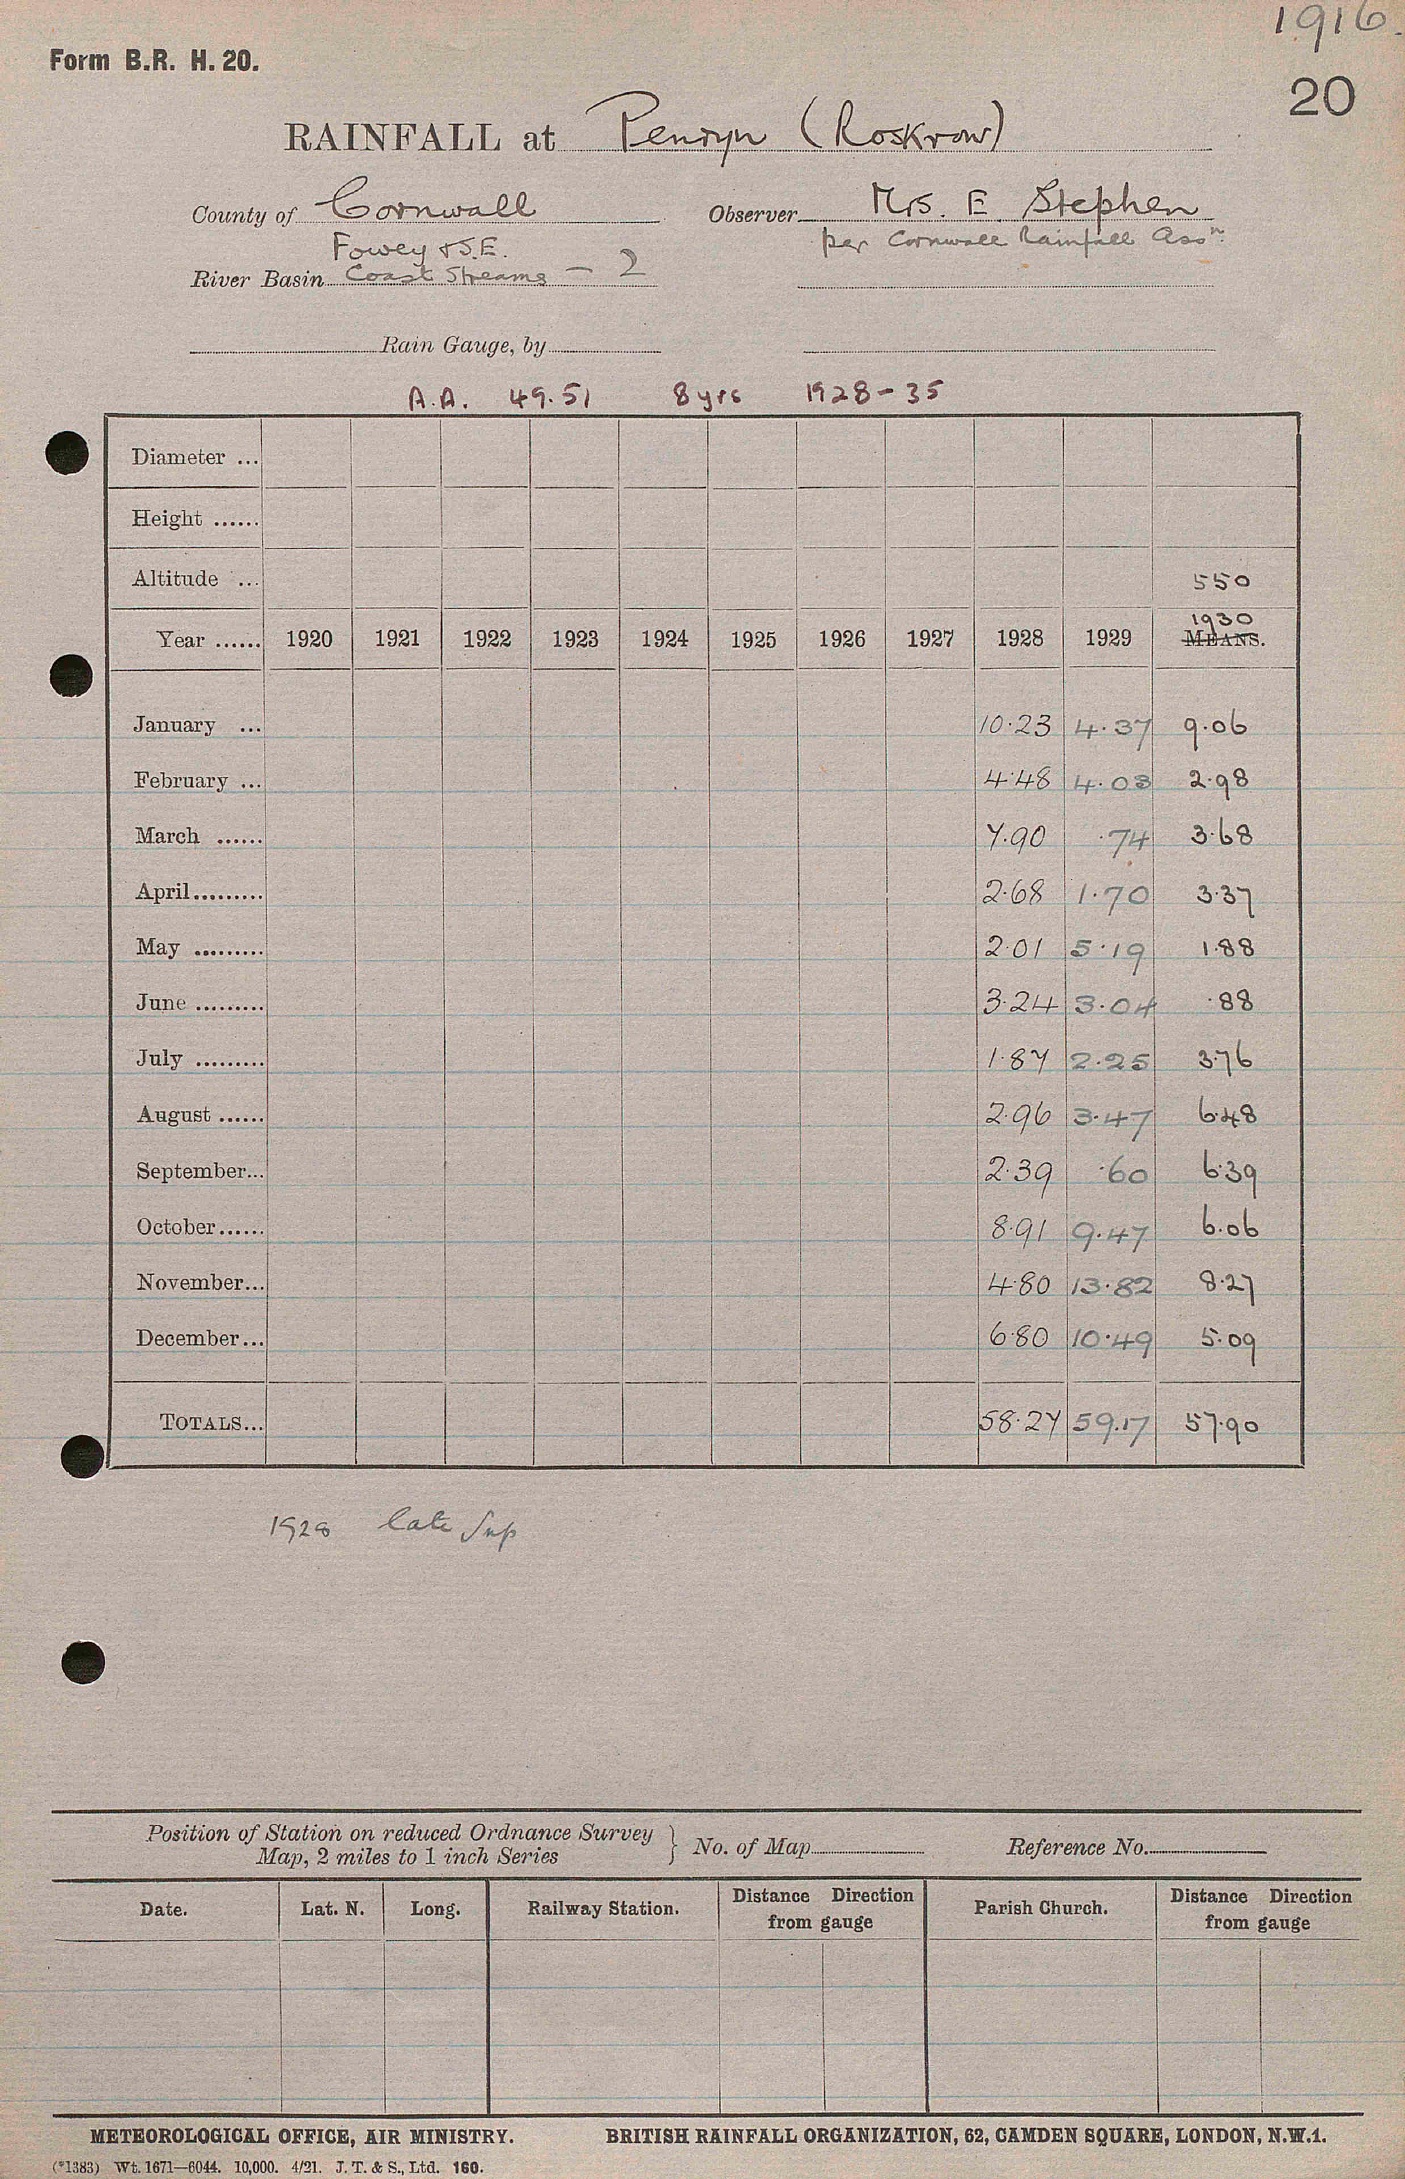 1916.
Form B.R. H. 20.
20
RAINFALL at Penryn (Roskrow)
County of Cornwall Observer Mrs. E. Stephen
Fowey & S.E. per Cornwall Rainfall Assn.
River Basin Coast Streams - 2
Rain Gauge, by
A.A. 49.51 8 yrs 1928-35
Diameter ...
Height ......
Altitude ... 550
1930
Year ...... 1920 1921 1922 1923 1924 1925 1926 1927 1928 1929 MEANS.
January ... 10.23 4.37 9.06
February ... 4.48 4.03 2.98
March ...... 7.90 .74 3.68
April ......... 2.68 1.70 3.37
May ......... 2.01 5.19 1.88
June ......... 3.24 3.04 .88
July ......... 1.87 2.25 3.76
August ...... 2.96 3.47 6.48
September... 2.39 .60 6.39
October...... 8.91 9.47 6.06
November... 4.80 13.82 8.27
December... 6.80 10.49 5.09
TOTALS... 58.27 59.17 57.90
1928 late Sup
Position of Station on reduced Ordnance Survey
Map, 2 miles to 1 inch Series } No. of Map Reference No.
Date. Lat. N. Long. Railway Station. Distance Direction from gauge Parish Church. Distance Direction from gauge
METEOROLOGICAL OFFICE, AIR MINISTRY. BRITISH RAINFALL ORGANIZATION, 62, CAMDEN SQUARE, LONDON, N.W.1.
(*1383) Wt. 1671—6044. 10,000. 4/21. J. T. & S., Ltd. 160.